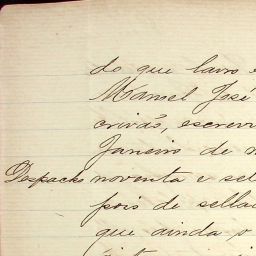 do que lavro e
Manoel José
crivão, escrevi
Janeiro de n
Despacho noventa e set
pois de sellad
que ainda o